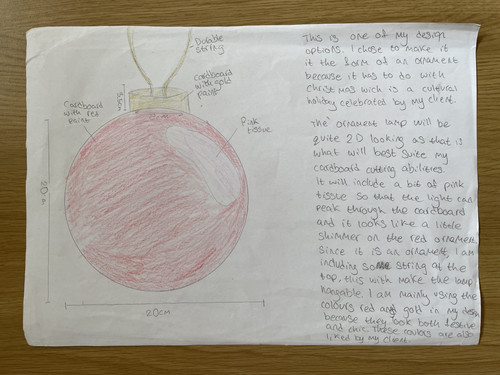 Durable
string
cardboard
with gold
paint
3.5cm
Cardboard
with red
paint
Pink
tissue
20cm
20cm
This is one of my design
options. I chose to make it
it the form of an ornament
because it has to do with
Christmas wich is a cultures
holiday celebrated by my client.
The ornament lamp will be
quite 2D looking as that is
what will best suite my
cardboard cutting abilities.
It will include a bit of pink
tissue so that the light can
peak through the cardboard
and it looks like a little
shimmer on the red ornament.
Since it is an ornament, I am
including some string at the
top, this with make the lamp
hangable. I am mainly using the
colours red and gold in my design
because they look both festive
and chic. These coulors are also
liked by my client